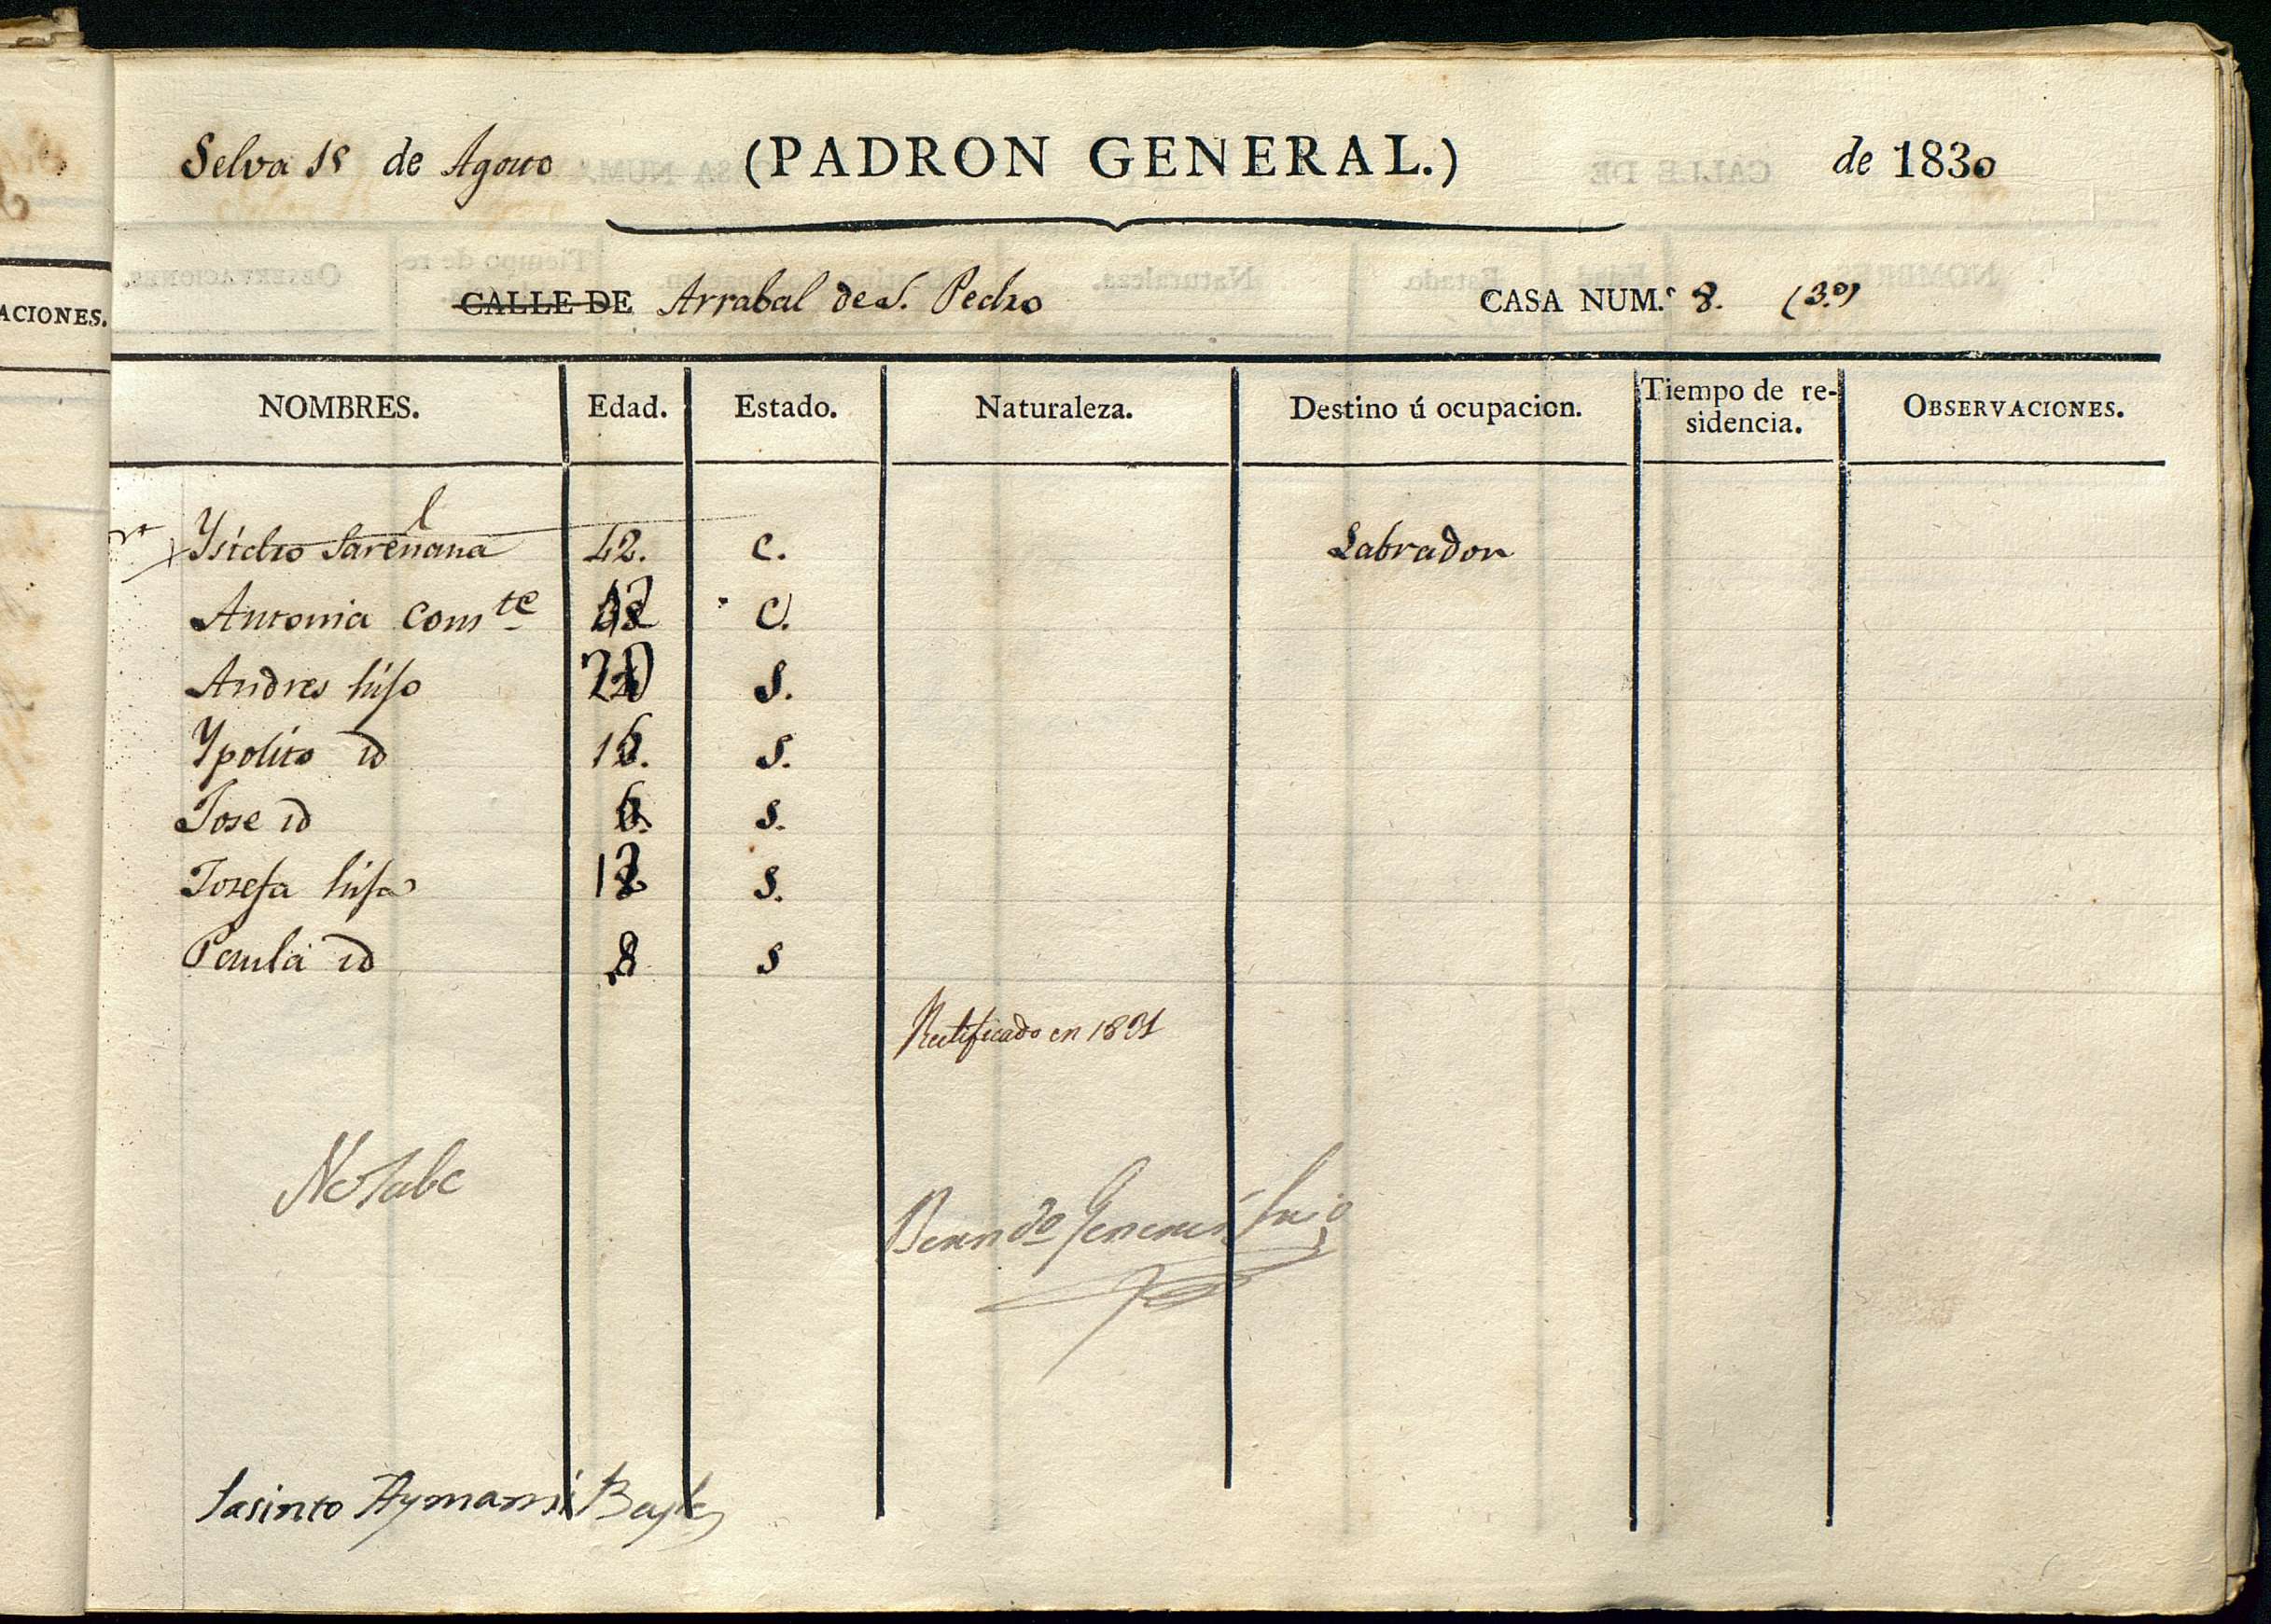 Selva 18 de Agosto (PADRON GENERAL.) de 1830
CALLE DE Arrabal de S. Pedro CASA NUM.º 8. (3.º)
ACIONES.
NOMBRES. Edad. Estado. Naturaleza. Destino ú ocupacion. Tiempo de re-
sidencia. OBSERVACIONES.
Ysidro 42. C. Labrador
Antonia Comte C.
Andres hijo S.
Ypolito id 16. S.
Jose id 6. S.
Josefa hija S.
Paula id 8 S
Rectificado en 1831
Jasinto Aymamí Bayle